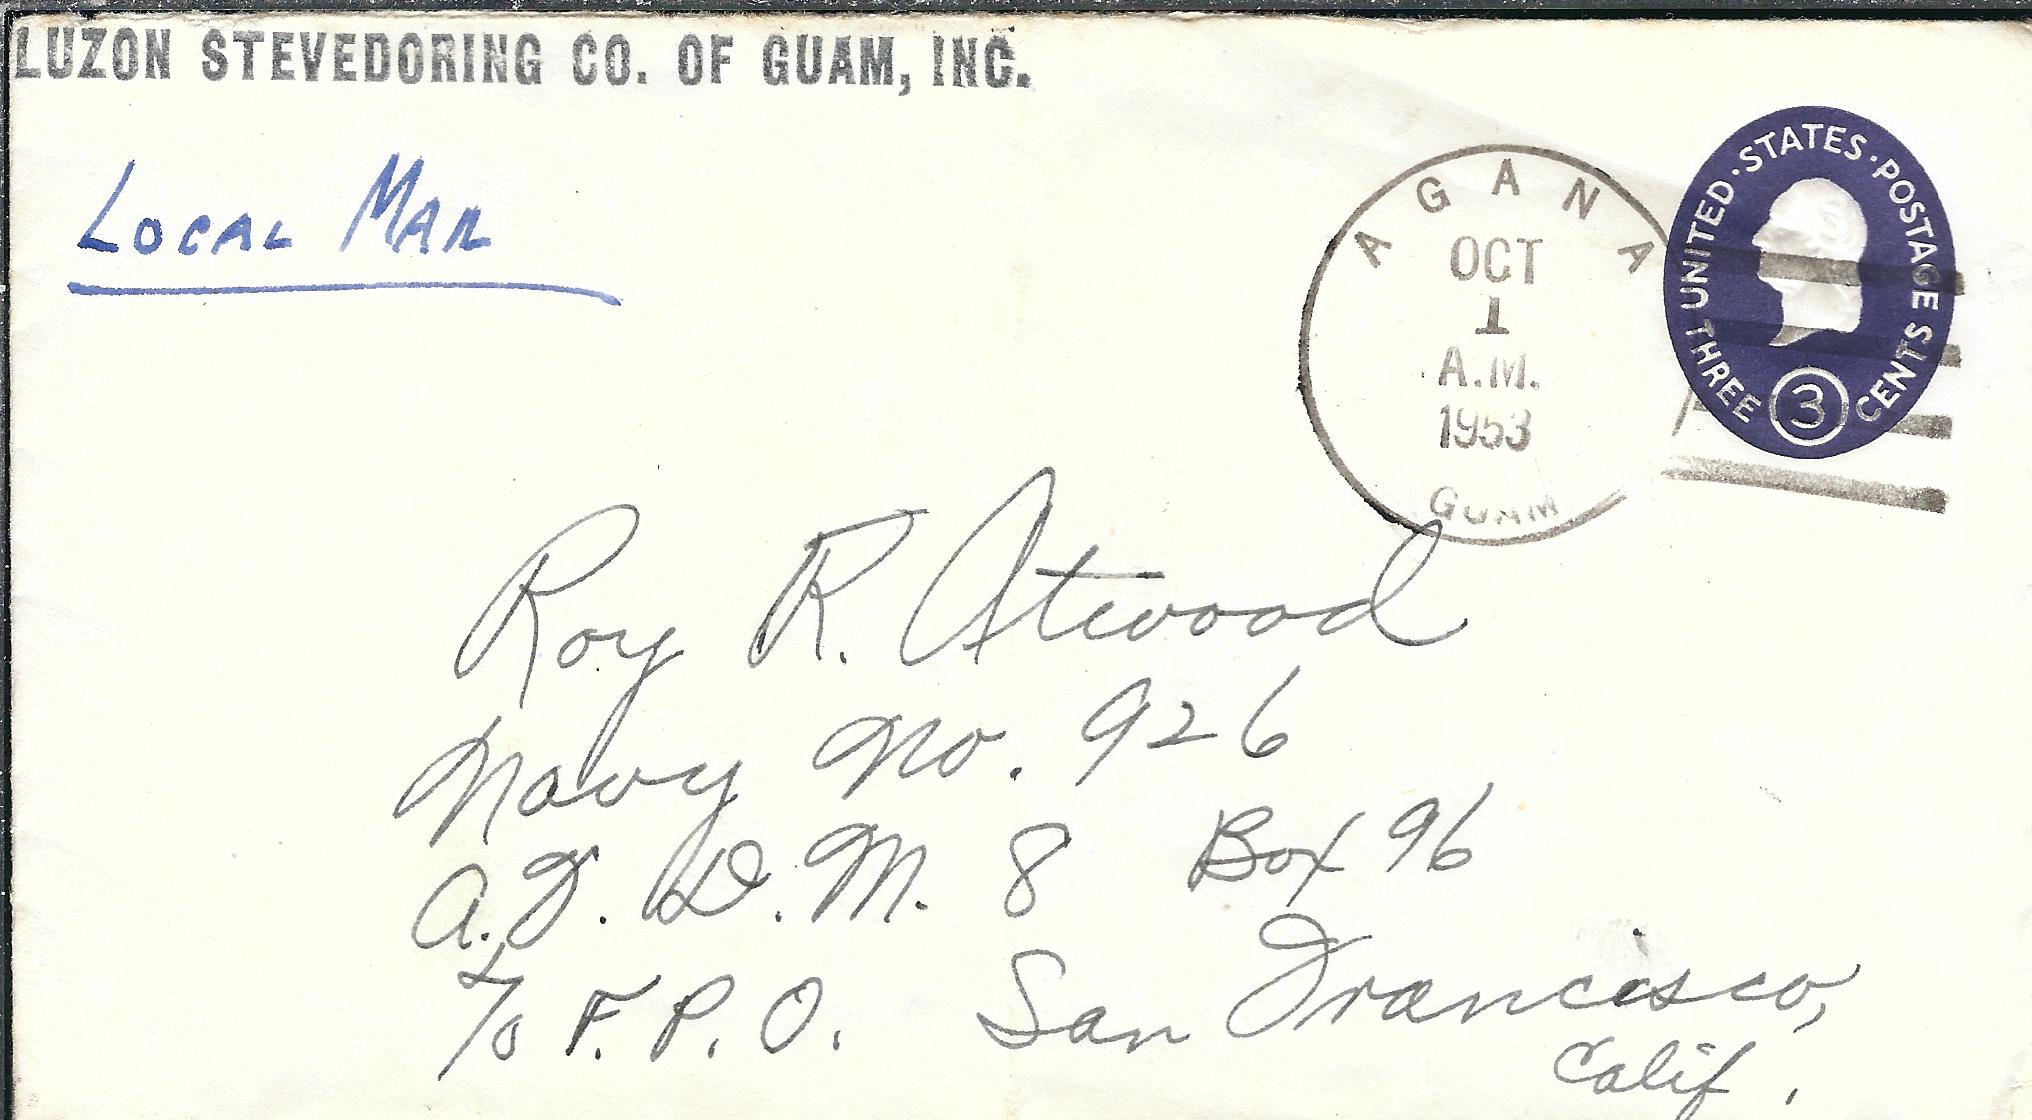 LUZON STEVEDORING CO. OF GUAM, INC.
LOCAL MAIL
AGANA
OCT
1
A.M.
1953
GUAM
UNITED · STATES · POSTAGE
THREE 3 CENTS
Roy R. Atwood
Navy No. 926
Box 96
c/o F.P.O. San Francisco,
Calif.